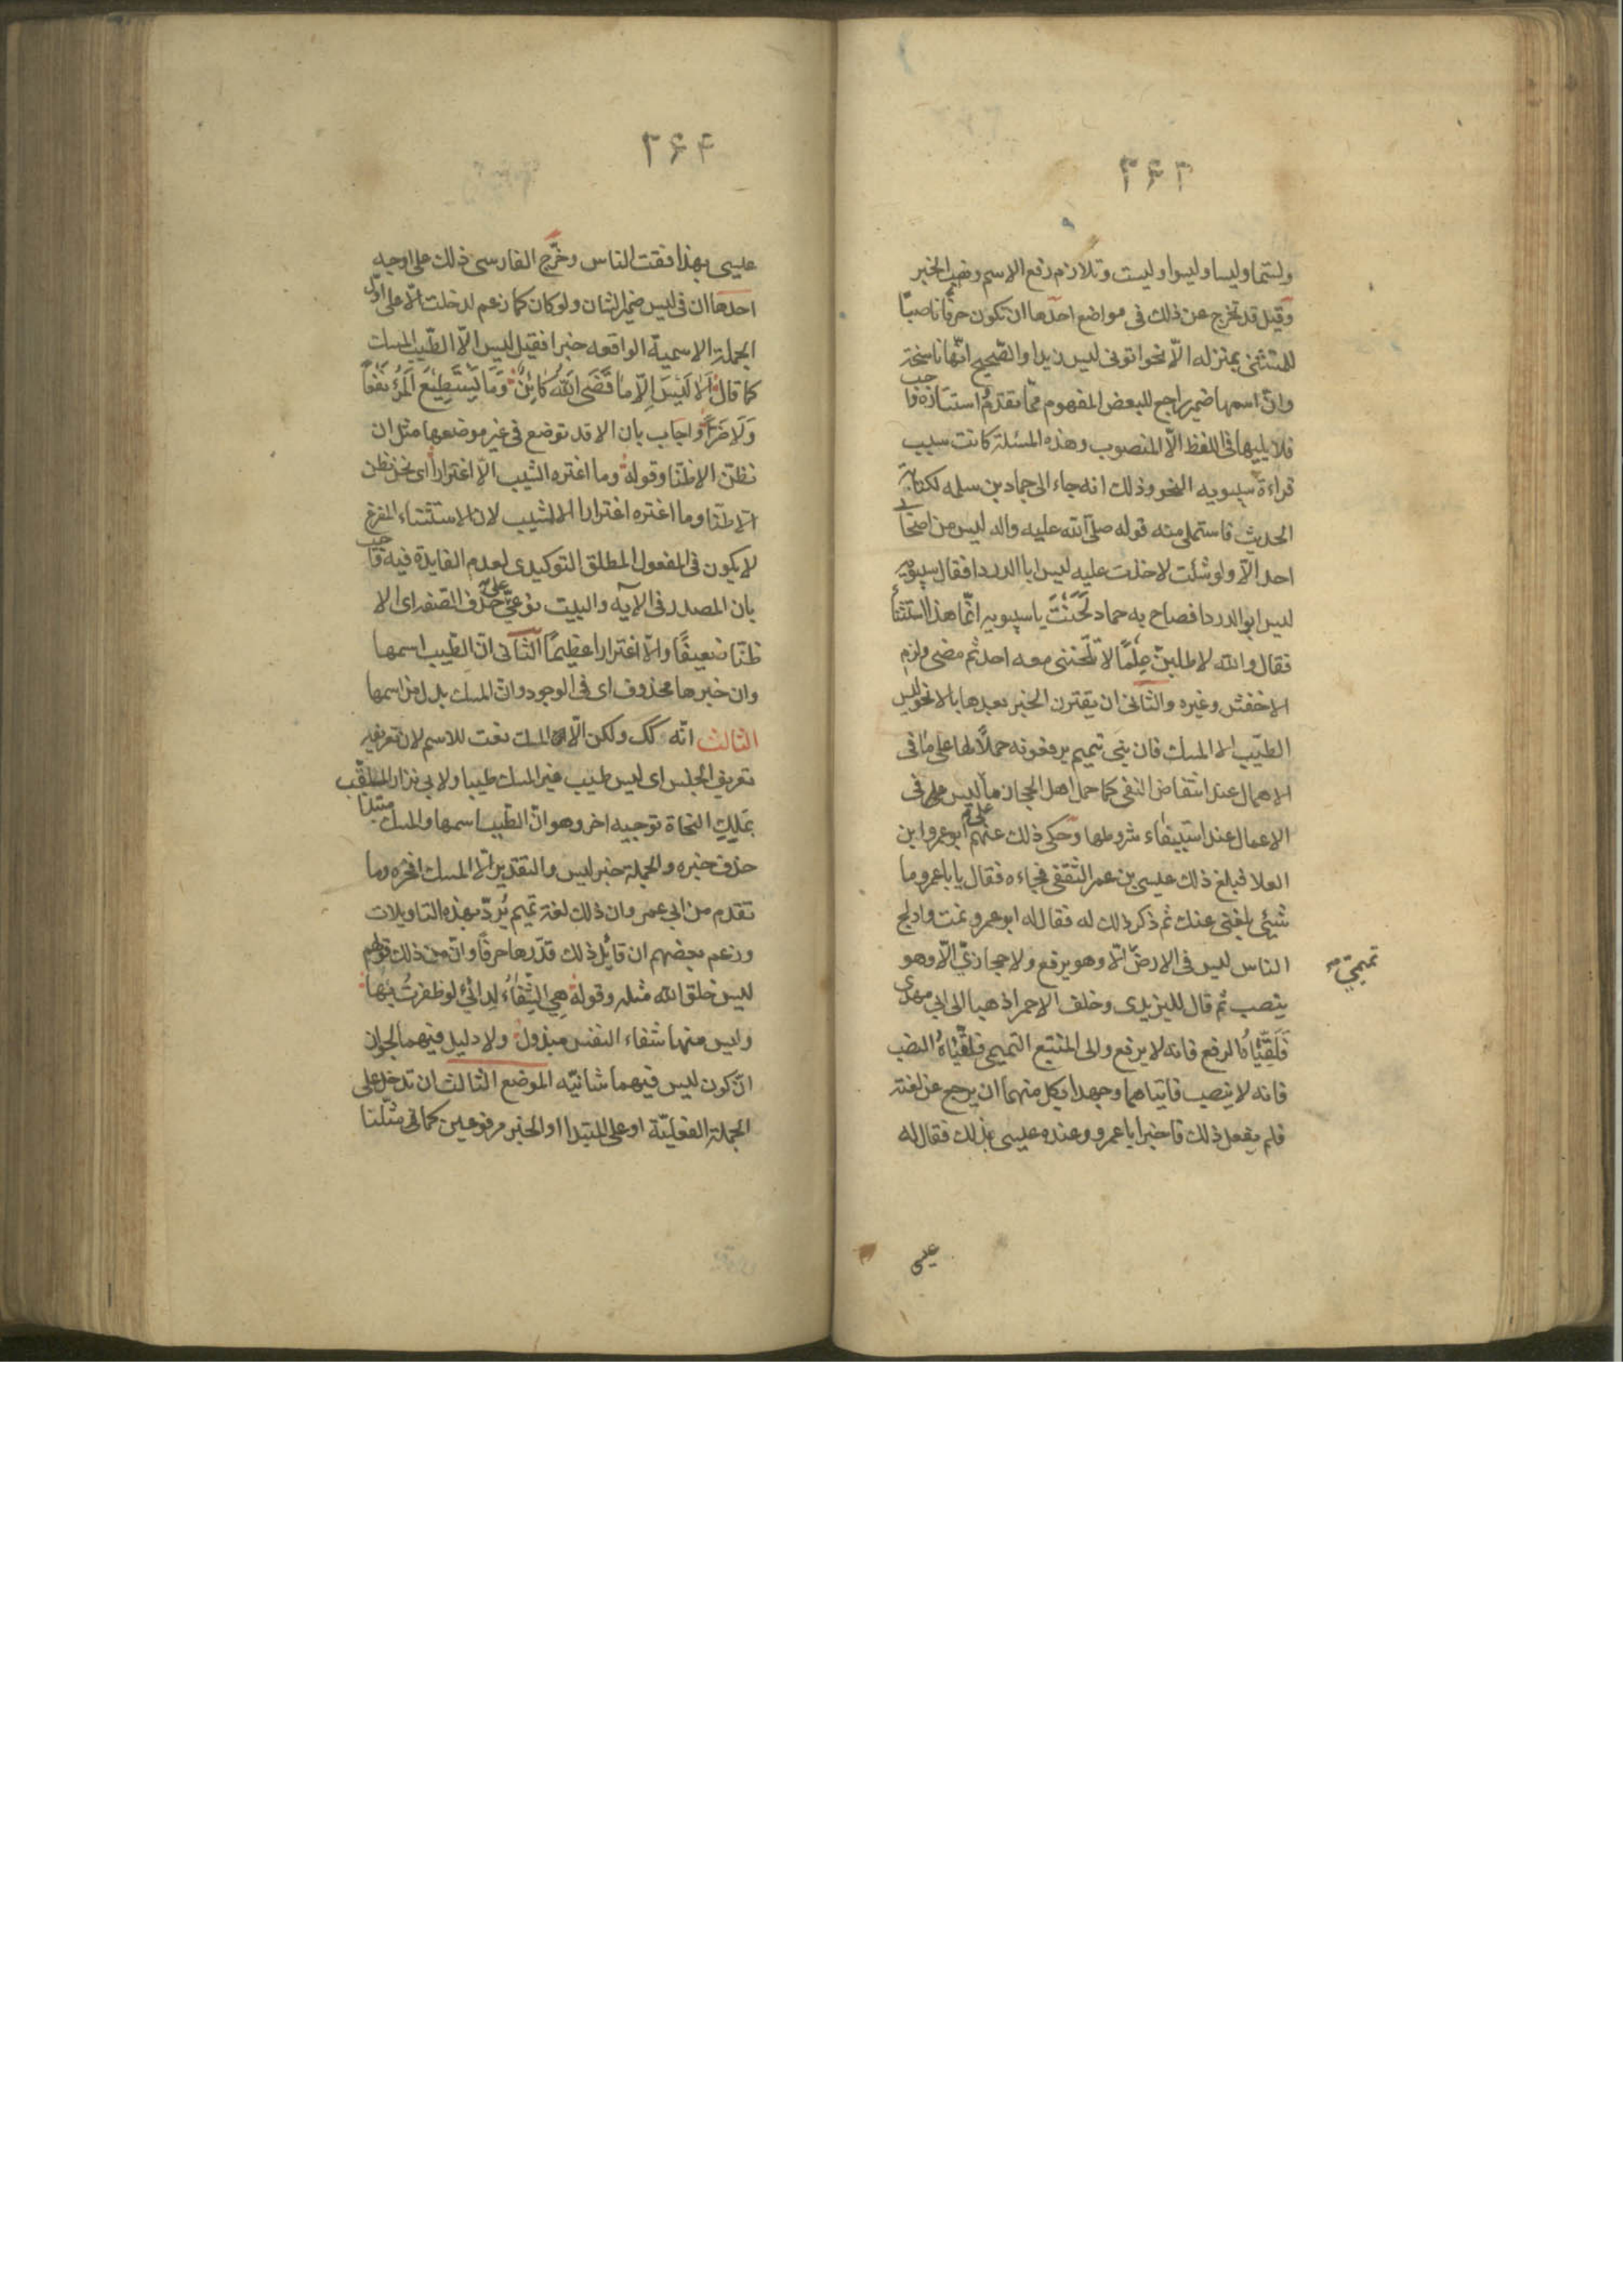 ٣۶٣
ولستما وليسا وليسوا وليست وتلازم رفع الاسم ونصب الخبر
وقيل قد تخرج عن ذلك فى مواضع احدها ان تكون حرفا ناصبًا
للمستثنى بمنزله الّا نحو اتونى ليس زيدا والصّحيح انّها ناسخة
وانّ اسمها ضمير راجع للبعض المفهوم ممّا تقدّم واستتاره واجب
فلا يليها فى اللفظ الّا المنصوب وهذه المسئلة كانت سبب
قراءة سيبويه النحو وذلك انه جاء الى حماد بن سلمه لكتابة
الحديث فاستملى منه قوله صلّى الله عليه واله ليس من اصحابى
احد الّا ولو شئت لاخذت عليه ليس ابا الدردا فقال سيبويه
ليس ابو الدردا فصاح به حماد لَحَنْتَ يا سيبويه انّما هذا استثنأ
فقال والله لاطلبنّ عِلمًا لا تلحننى معه احد ثم مضى ولزم
الاخفش وغيره والثانى ان يقترن الخبر بعدها بالا نحو ليس
الطيّب الا المسك فان بنى تميم يرفعونه حملاً لها على ما فى
الاهمال عند انتقاض النفى كما حمل اهل الحجاز ما على ليس فى
الاعمال عند استيفاء شروطها وحكى ذلك عنهم ابو عمرو ابن
العلا فبلغ ذلك عيسى بن عمر الثقفى فجاءه فقال يا با عمرو ما
شيئى بلغنى عنك ثم ذكر ذلك له فقال له ابو عمرو نمت وادلج
الناس ليس فى الارض الّا وهو يرفع ولا حجازىّ الّا وهو
تميمىّ
ينصب ثم قال لليزيدى وخلف الاحمر اذهبا الى ابى مهدى
فَلَقِّنَاهُ الرفع فانه لا يرفع والى المنتجع التميمى فلقِّنَاهُ النصب
فانه لا ينصب فاتياهما وجهدا بكل منهما ان يرجع عن لغته
فلم يفعل ذلك فاخبرا ابا عمرو وعنده عيسى بذلك فقال له
عيسى
٣۶۴
عيسى بهذا فقت الناس وخرّج الفارسى ذلك على اوجه
احدها ان فى ليس ضمير الشان ولو كان كما زعم لدخلت الّا على اوّل
الجملة الاسميّة الواقعه خبرا فقيل ليس الّا الطّيب المسك
كما قال اَلا لَيْسَ اِلّا ما قَضَى اللهُ كَائِنٌ وَمَا يَسْتَطِيْعُ المَرْءُ نَفْعاً
وَلَا ضَرّاً واجاب بان الا قد توضع فى غير موضعها مثل ان
نظنّ الا ظنّا وقوله وما اغتره الشيب الّا اغترارا اى نحن نظن
الا ظنّا وما اغتره اغترارا الا الشيب لان الاستثناء المفرغ
لا يكون فى المفعول المطلق التوكيدى لعدم الفايدة فيه واجب
بان المصدر فى الآيه والبيت نوعىّ على حذف الصّفة اى الا
ظنّا ضعيفًا والّا اغترارا عظيمًا الثانى انّ الطّيب اسمها
وان خبرها محذوف اى فى الوجود وان المسك بدل من اسمها
الثالث انّه كك ولكن الّا المسك نعت للاسم لان تعريفه
تعريف الجنس اى ليس طيب غير المسك طيبا ولابى نزار الملقّب
بملك النحاة توجيه اخر وهو انّ الطّيب اسمها والمسك مبتدا
حذف خبره والجملة خبر ليس والتقدير الّا المسك افخره وما
تقدم من ابى عمر وان ذلك لغة تميم يُردّ بهذه التاويلات
وزعم بعضهم ان قايل ذلك قدّرها حرفاً وانّ من ذلك قولهم
ليس خلق الله مثله وقوله هِىَ الشِّفَاءُ لِدائى لو ظفرتُ بها
وليس منها شفاء النفس مبذول ولا دليل فيهما لجواز
ان كون ليس فيهما شانيّه الموضع الثالث ان تدخل على
الجملة الفعليّة او على المبتدا او الخبر مرفوعين كما فى مثّلنا